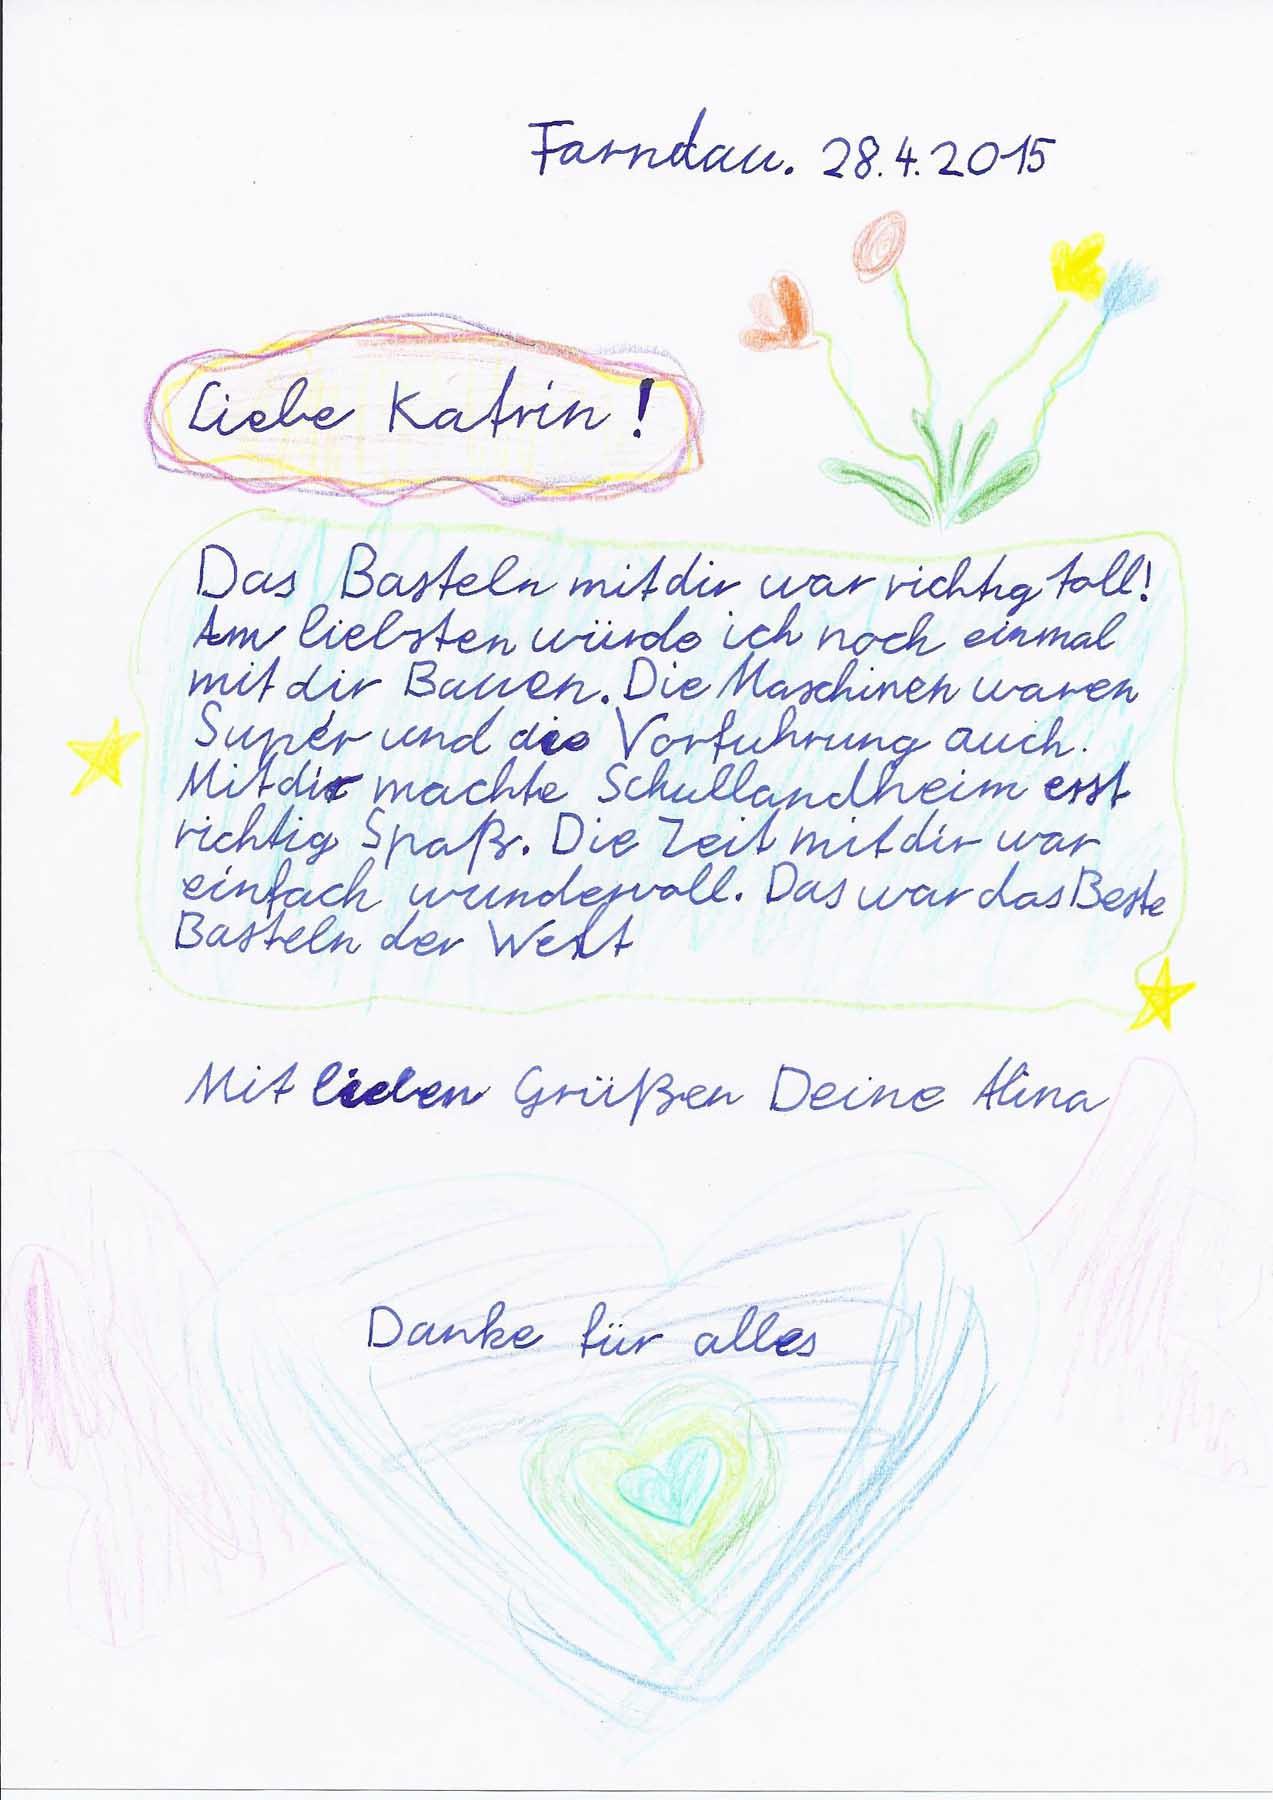 Farndau. 28.4.2015
Liebe Katrin!
Das Basteln mit dir war richtig toll!
Am liebsten würde ich noch einmal
mit dir Bauen. Die Maschinen waren
Super und die Vorfuhrung auch.
Mit dir machte Schullandheim erst
richtig Spaß. Die Zeit mit dir war
einfach wundervoll. Das war das Beste
Basteln der Welt
Mit lieben Grüßen Deine Alina
Danke für alles